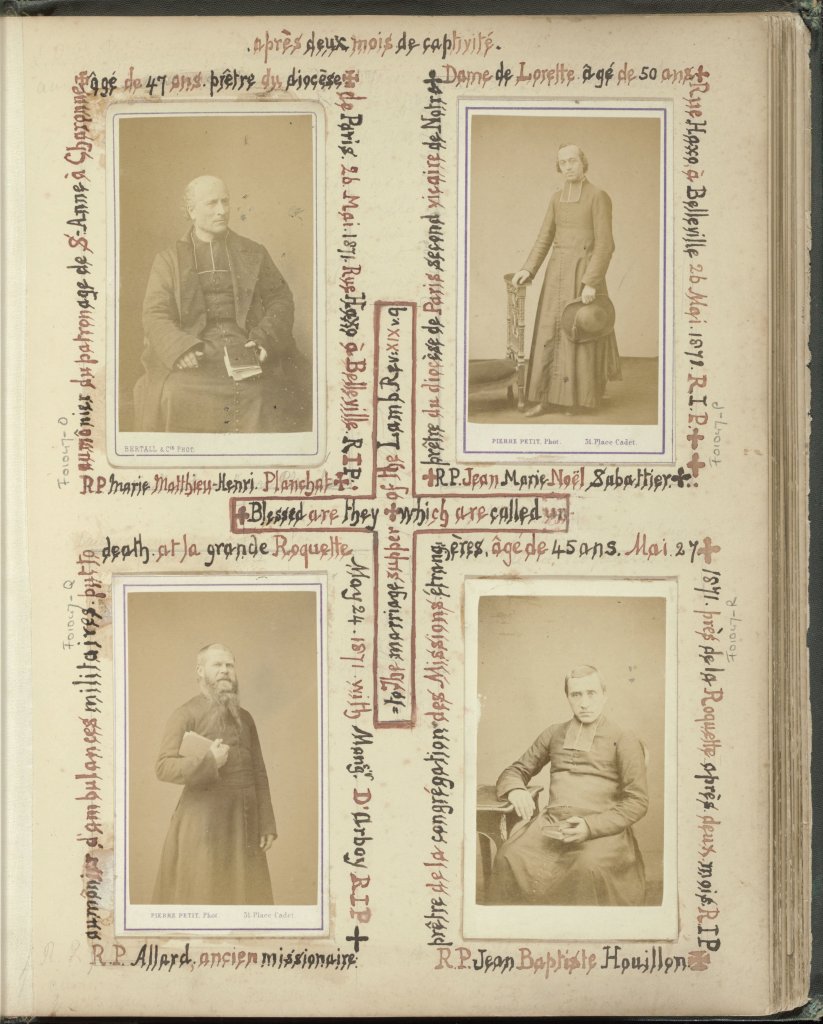 après deux mois de captivité.
R.P. Marie Matthieu-Henri Planchat
aumônier du patronage de St-Anne à Charonne
âgé de 47 ans. prêtre du diocèse
de Paris. 26 Mai. 1871. Rue Haxo à Belleville. R.I.P.
BERTALL & Cie PHOT.
F01047-O
R.P. Jean Marie Noël Sabattier
prêtre du diocèse de Paris second vicaire de Notre
Dame de Lorette. âgé de 50 ans
Rue Haxo à Belleville 26 Mai. 1871. R.I.P.
PIERRE PETIT, Phot. 31. Place Cadet.
F01047-P
Blessed are they which are called un-
=to the marriage supper of the Lamb Rev: XIX
R.P. Allard. ancien missionaire
aumônier d'ambulances militaires. put to
death at la grande Roquette
May 24. 1871. with Mongr. D'Arboy R.I.P
PIERRE PETIT. Phot. 31. Place Cadet.
F01047-Q
R.P. Jean Baptiste Houillon
prêtre de la congrégation des Missions étran
géres, âgé de 45 ans. Mai. 27
1871. près de la Roquette après deux mois R.I.P
F01047-R